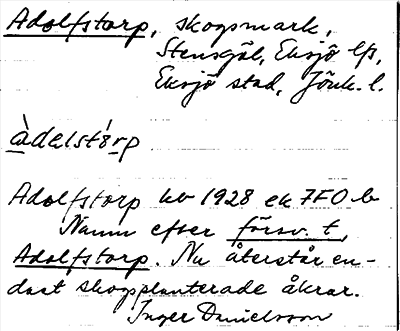 Adolfstorp, skogsmark,
Stensgöl, Eksjö lfs,
Eksjö stad, Jönk. l.
àdalstó̀rp
Adolfstorp hv 1928 ek 7FO b
Namn efter försv. t,
Adolfstorp. Nu återstår en-
dast skogsplanterade åkrar.
Inger Danielsson